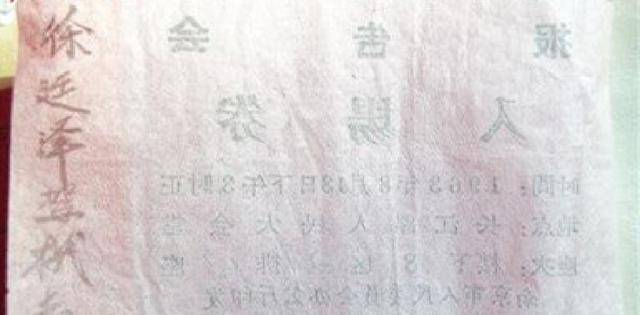 徐廷泽驾机
报告会
入場券
时間：1963年8月13日下午3时正
地点：长江路人民大会堂
座次：楼下 8 区 排 座
南京市人民委員会办公厅印发